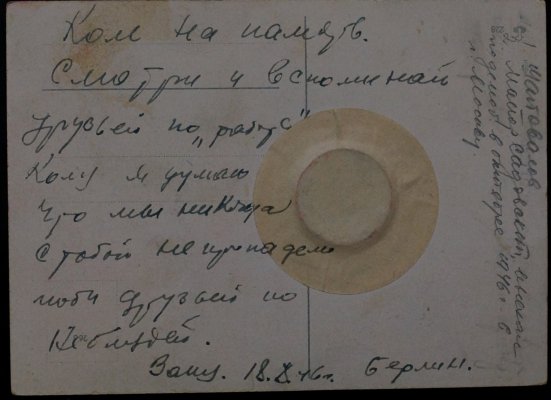 Коля на память.
Смотри и вспоминай
друзьей по "работе"
Колу я думаю
что мы никогда
с тобой не пропадем
люби друзьей по
Ваш. 18.X.46г. Берлин.
Шаповалов
Майор
в октябре 1946г. в
г. Москву.